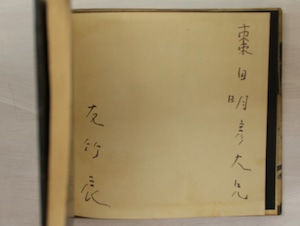 棗田明彦大兄
友竹辰